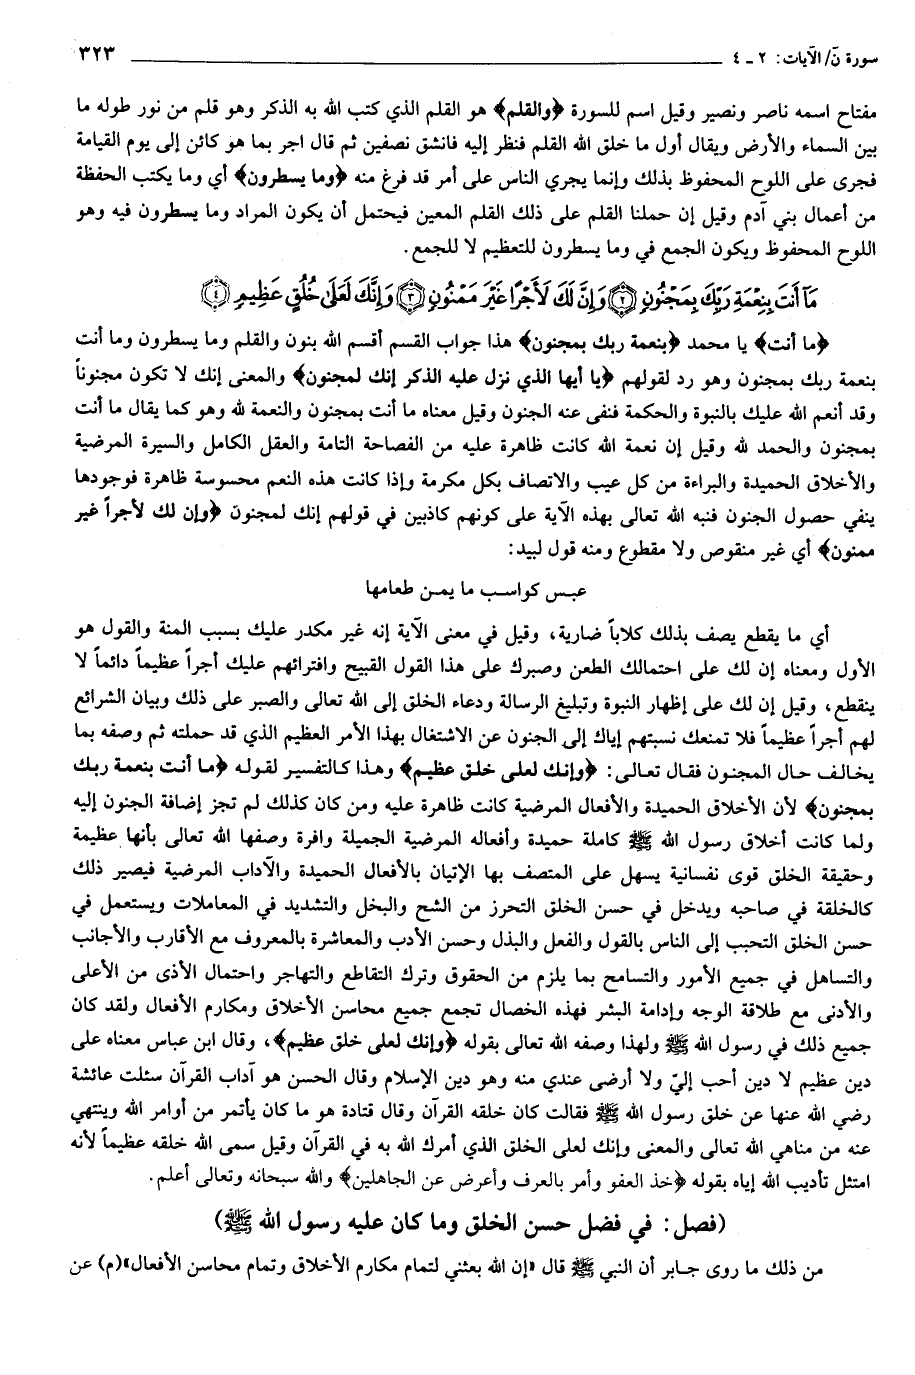 سورة ن/ الآيات: ٢ ـ ٤ ٣٢٣
مفتاح اسمه ناصر ونصير وقيل اسم للسورة ﴿والقلم﴾ هو القلم الذي كتب الله به الذكر وهو قلم من نور طوله ما
بين السماء والأرض ويقال أول ما خلق الله القلم فنظر إليه فانشق نصفين ثم قال اجر بما هو كائن إلى يوم القيامة
فجرى على اللوح المحفوظ بذلك وإنما يجري الناس على أمر قد فرغ منه ﴿وما يسطرون﴾ أي وما يكتب الحفظة
من أعمال بني آدم وقيل إن حملنا القلم على ذلك القلم المعين فيحتمل أن يكون المراد وما يسطرون فيه وهو
اللوح المحفوظ ويكون الجمع في وما يسطرون للتعظيم لا للجمع.
مَا أَنتَ بِنِعْمَةِ رَبِّكَ بِمَجْنُونٍ ﴿٢﴾ وَإِنَّ لَكَ لَأَجْرًا غَيْرَ مَمْنُونٍ ﴿٣﴾ وَإِنَّكَ لَعَلَىٰ خُلُقٍ عَظِيمٍ ﴿٤﴾
﴿ما أنت﴾ يا محمد ﴿بنعمة ربك بمجنون﴾ هذا جواب القسم أقسم الله بنون والقلم وما يسطرون وما أنت
بنعمة ربك بمجنون وهو رد لقولهم ﴿يا أيها الذي نزل عليه الذكر إنك لمجنون﴾ والمعنى إنك لا تكون مجنوناً
وقد أنعم الله عليك بالنبوة والحكمة فنفى عنه الجنون وقيل معناه ما أنت بمجنون والنعمة لله وهو كما يقال ما أنت
بمجنون والحمد لله وقيل إن نعمة الله كانت ظاهرة عليه من الفصاحة التامة والعقل الكامل والسيرة المرضية
والأخلاق الحميدة والبراءة من كل عيب والاتصاف بكل مكرمة وإذا كانت هذه النعم محسوسة ظاهرة فوجودها
ينفي حصول الجنون فنبه الله تعالى بهذه الآية على كونهم كاذبين في قولهم إنك لمجنون ﴿وإن لك لأجراً غير
ممنون﴾ أي غير منقوص ولا مقطوع ومنه قول لبيد:
عبس كواسب ما يمن طعامها
أي ما يقطع يصف بذلك كلاباً ضارية، وقيل في معنى الآية إنه غير مكدر عليك بسبب المنة والقول هو
الأول ومعناه إن لك على احتمالك الطعن وصبرك على هذا القول القبيح وافترائهم عليك أجراً عظيماً دائماً لا
ينقطع، وقيل إن لك على إظهار النبوة وتبليغ الرسالة ودعاء الخلق إلى الله تعالى والصبر على ذلك وبيان الشرائع
لهم أجراً عظيماً فلا تمنعك نسبتهم إياك إلى الجنون عن الاشتغال بهذا الأمر العظيم الذي قد حملته ثم وصفه بما
يخالف حال المجنون فقال تعالى: ﴿وإنك لعلى خلق عظيم﴾ وهذا كالتفسير لقوله ﴿ما أنت بنعمة ربك
بمجنون﴾ لأن الأخلاق الحميدة والأفعال المرضية كانت ظاهرة عليه ومن كان كذلك لم تجز إضافة الجنون إليه
ولما كانت أخلاق رسول الله ﷺ كاملة حميدة وأفعاله المرضية الجميلة وافرة وصفها الله تعالى بأنها عظيمة
وحقيقة الخلق قوى نفسانية يسهل على المتصف بها الإتيان بالأفعال الحميدة والآداب المرضية فيصير ذلك
كالخلقة في صاحبه ويدخل في حسن الخلق التحرز من الشح والبخل والتشديد في المعاملات ويستعمل في
حسن الخلق التحبب إلى الناس بالقول والفعل والبذل وحسن الأدب والمعاشرة بالمعروف مع الأقارب والأجانب
والتساهل في جميع الأمور والتسامح بما يلزم من الحقوق وترك التقاطع والتهاجر واحتمال الأذى من الأعلى
والأدنى مع طلاقة الوجه وإدامة البشر فهذه الخصال تجمع جميع محاسن الأخلاق ومكارم الأفعال ولقد كان
جميع ذلك في رسول الله ﷺ ولهذا وصفه الله تعالى بقوله ﴿وإنك لعلى خلق عظيم﴾، وقال ابن عباس معناه على
دين عظيم لا دين أحب إليّ ولا أرضى عندي منه وهو دين الإسلام وقال الحسن هو آداب القرآن سئلت عائشة
رضي الله عنها عن خلق رسول الله ﷺ فقالت كان خلقه القرآن وقال قتادة هو ما كان يأتمر من أوامر الله وينتهي
عنه من مناهي الله تعالى والمعنى وإنك لعلى الخلق الذي أمرك الله به في القرآن وقيل سمى الله خلقه عظيماً لأنه
امتثل تأديب الله إياه بقوله ﴿خذ العفو وأمر بالعرف وأعرض عن الجاهلين﴾ والله سبحانه وتعالى أعلم.
(فصل: في فضل حسن الخلق وما كان عليه رسول الله ﷺ)
من ذلك ما روى جابر أن النبي ﷺ قال «إن الله بعثني لتمام مكارم الأخلاق وتمام محاسن الأفعال»(م) عن